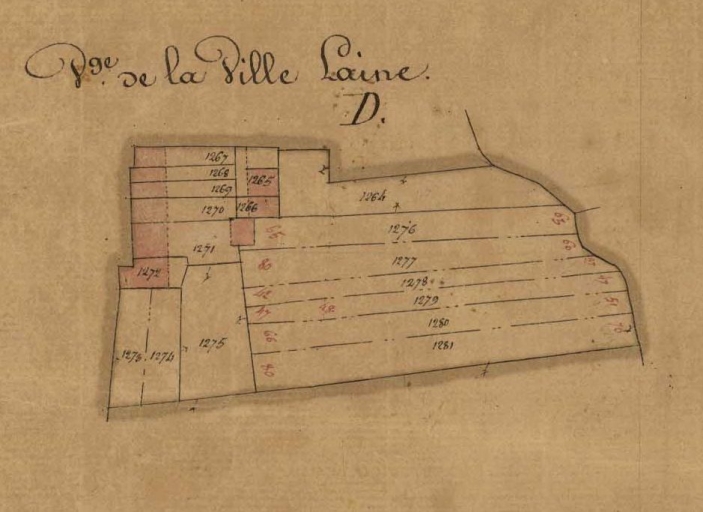 Vge. de la Ville Laine.
D.
1267
1268
1265
1269
1264
1270
1266
1276
1271
1277
1272
1278
1279
1280
1275
1281
1273
1274